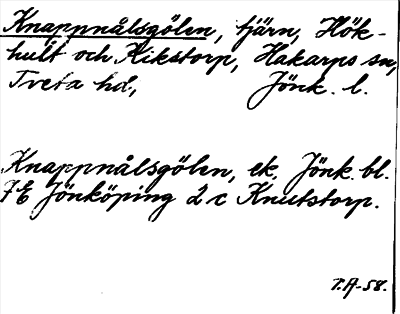 Knappnålsgölen, tjärn, Hök-
hult och Kikstorp, Hakarps sn,
Tveta hd, Jönk. l.
Knappnålsgölen, ek. Jönk. bl.
7E Jönköping 2 c Knutstorp.
T.A-58.